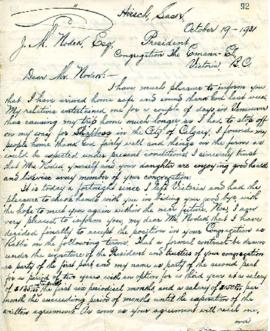 92
Hirsch, Sask.
October 19 - 1931
J. M. Nodek, Esq.
President
Congregation The Emanu-El
Victoria B.C.
Dear Mr. Nodek:-
I have much pleasure to inform you
that I have arrived home safe and sound last week.
My relatives entertained me for a couple of days in Vancouver
my trip home much longer as I had to stop off
on my way for in the City of Calgary. I found my
people home thank God fairly well and things on the farm as
could be expected under present conditions. I sincerely trust
that Mrs. Nodek, yourself and your daughters are enjoying good health
and likewise every member of your congregation.
It is today a fortnight since I left Victoria and had the
pleasure to shake hands with you in bidding you good bye with
the hope to meet you again within the near future. Yes, I am
very pleased to inform you, my dear Mr. Nodek, that I have
decided finally to accept the position in your Congregation as
Rabbi in the following terms. That a formal contract be drawn
under the signature of the President and trustees of your congregation
as party of the first part and my name as party of the second part
for a period of two years with an option for a third year at a salary
of for the first six periodical months and a salary of per
month the succeeding period of months until the expiration of the
written agreement. As soon as your agreement will reach me,
over